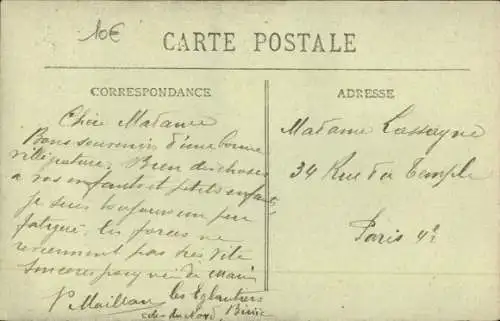 10€
CARTE POSTALE
CORRESPONDANCE
ADRESSE
Chère Madame
Bons souvenirs d'une bonne
villégiature. Bien des choses
a vos enfants et petits enfants,
je suis toujours un peu
fatiguée, les forces ne
reviennent pas très vite
Sinceres
de Marie
P Maillan
les Eglantiers
Madame Lassagne
34 Rue du Temple
Paris 4e